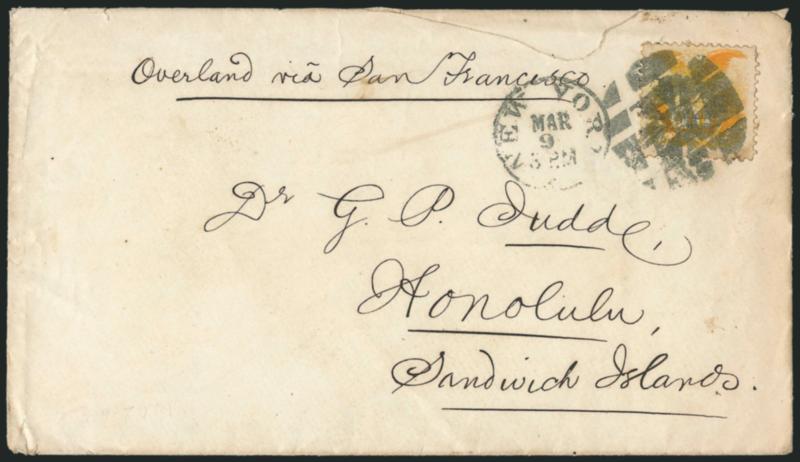 Overland viā San Francisco
NEW YORK
MAR
9
3 PM
Dr G. P. Judd,
Honolulu,
Sandwich Islands.